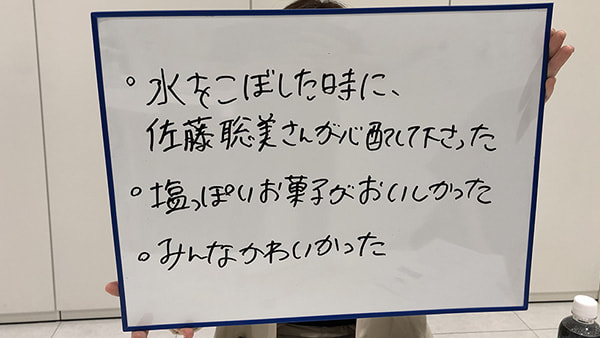 。水をこぼした時に、
佐藤聡美さんが心配して下さった
。塩っぽいお菓子がおいしかった
。みんなかわいかった